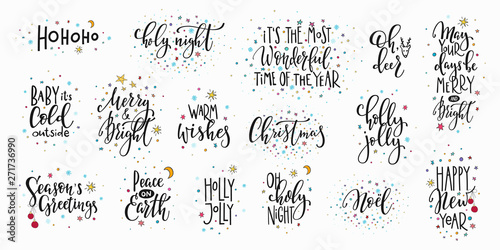 HOHOHO
holy night
IT'S THE MOST
Wonderful
TIME OF THE YEAR
Oh,
deer
May
YOUR
days be
MERRY
AND
Bright
BABY it's
Cold
outside
Merry
&
Bright
WARM
wishes
Christmas
holly
jolly
Season's
Greetings
Peace
ON
Earth
HOLLY
JOLLY
OH
holy
NIGHT
Noël
HAPPY
New
YEAR
Adobe Stock | #271736990